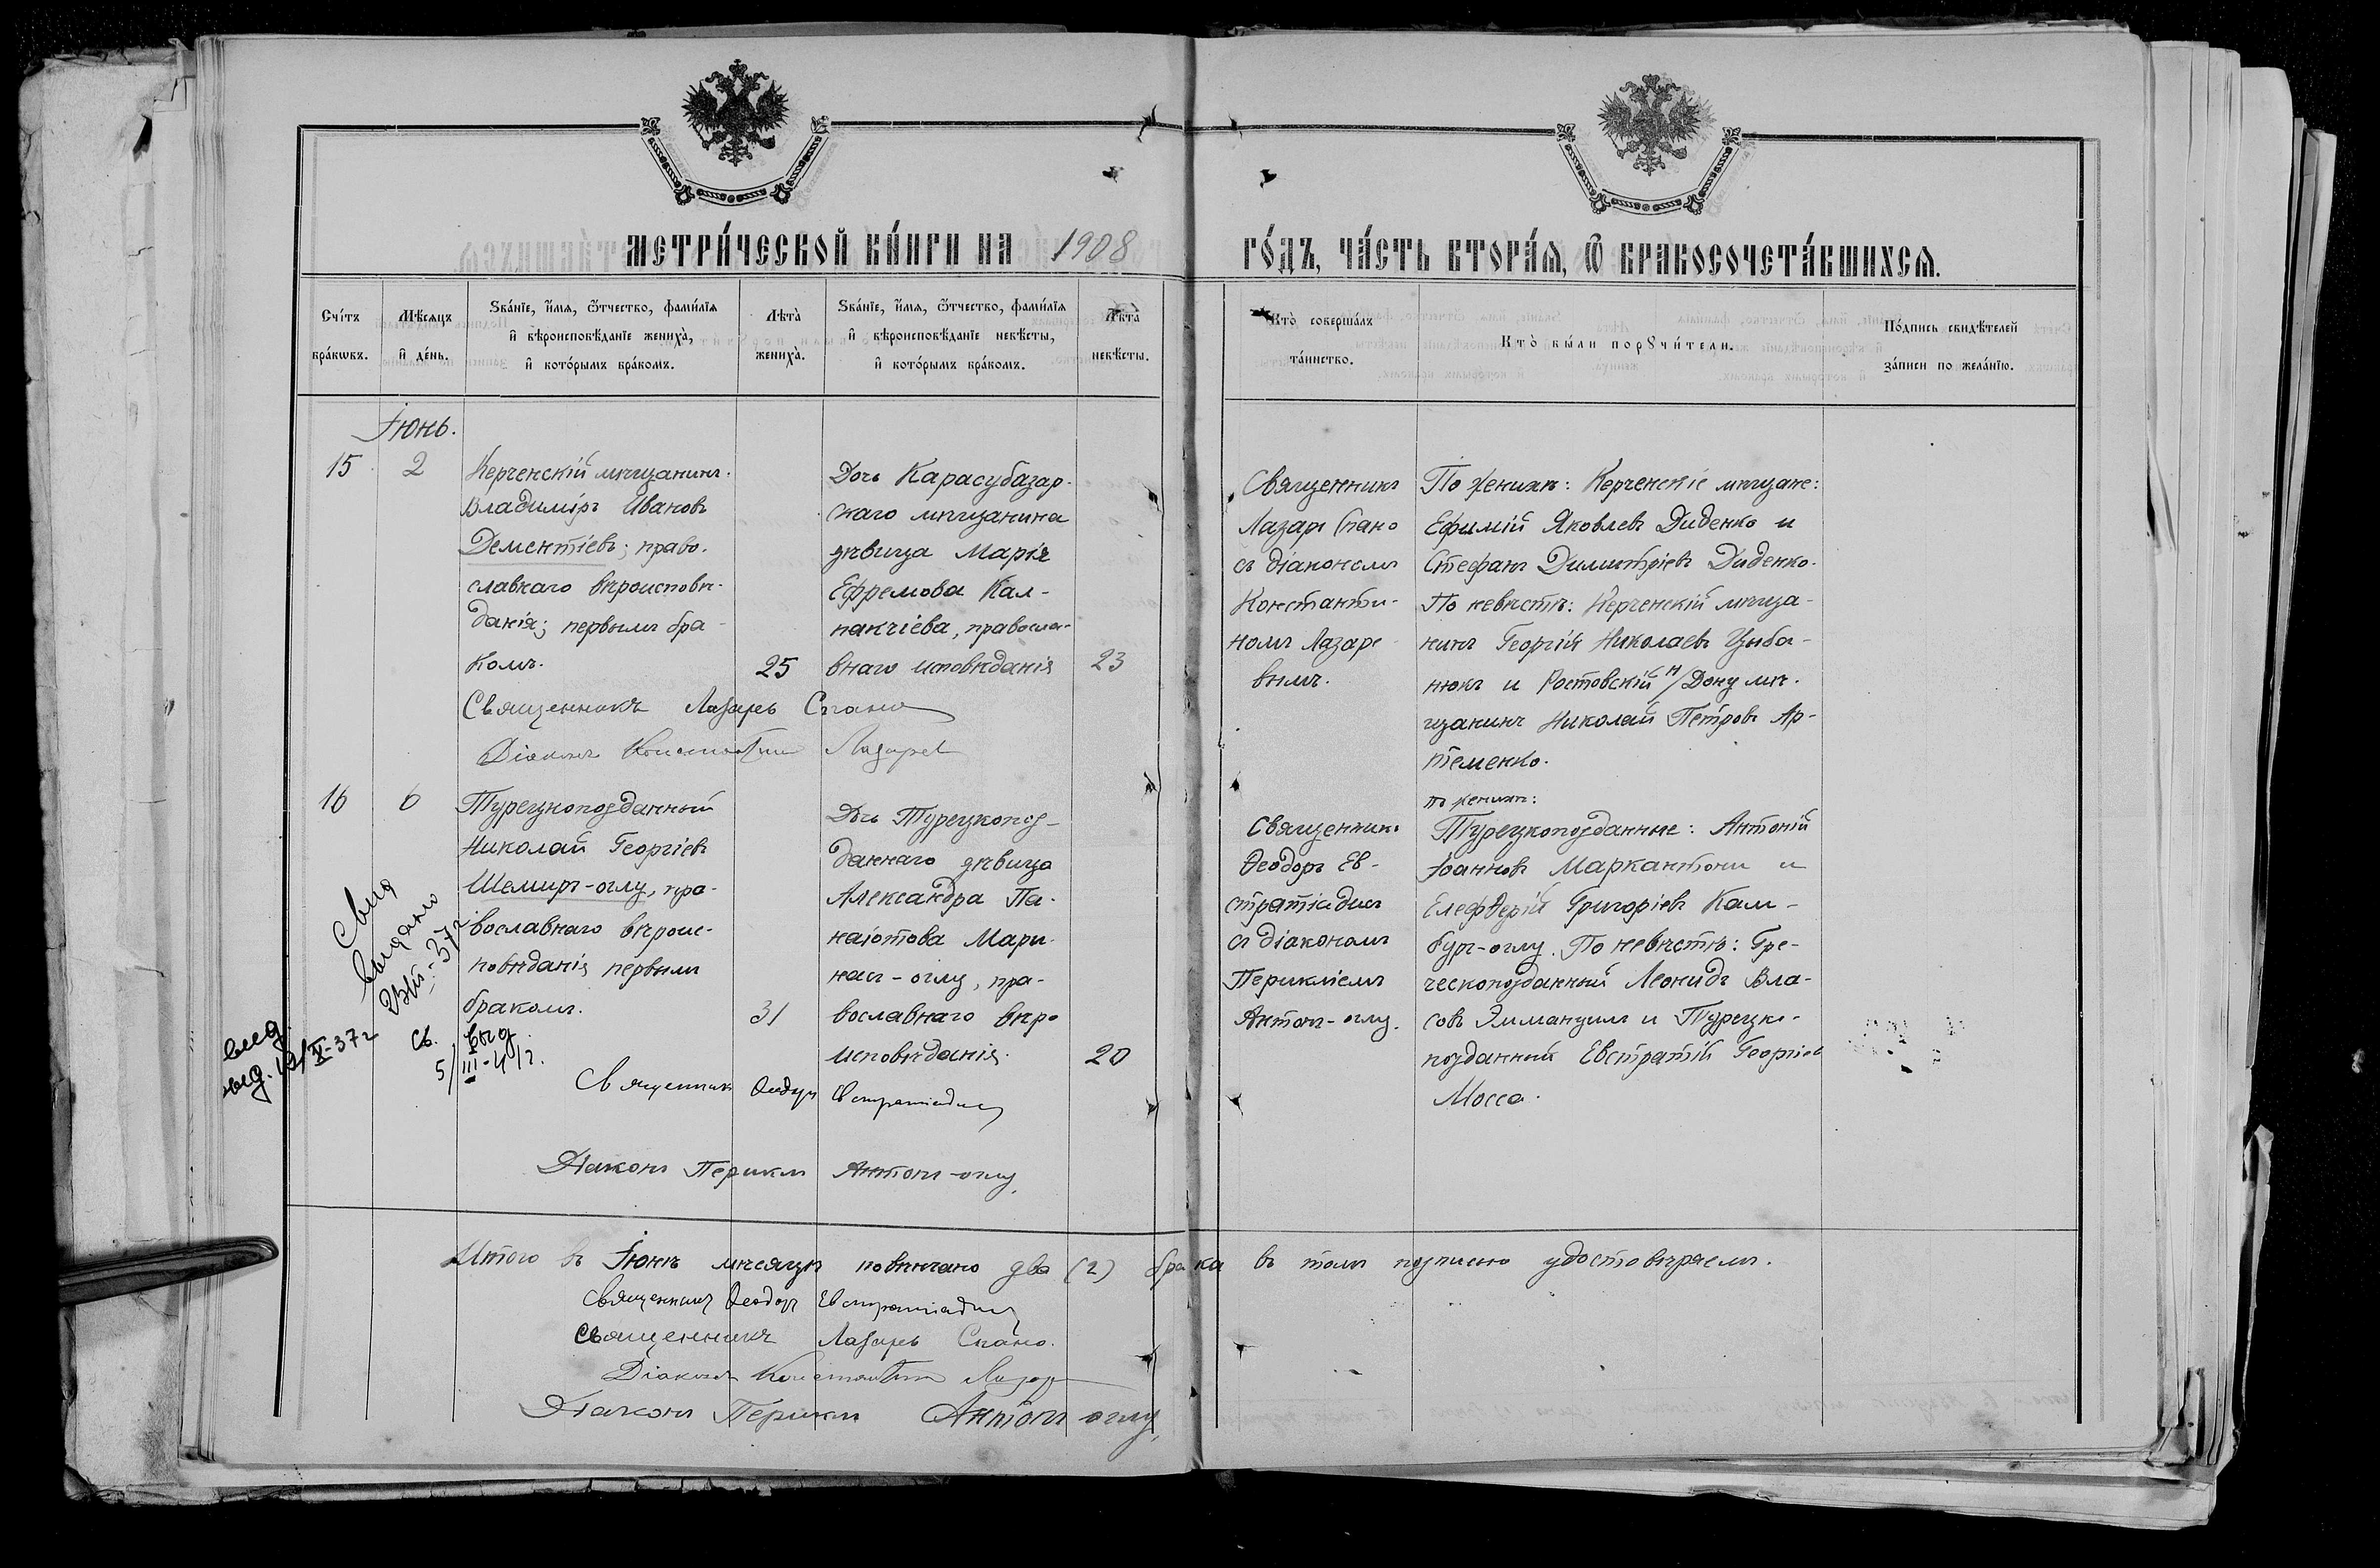 МЕТРИ́ЧЕСКОЙ КНИ́ГИ НА 1908
ГО́ДЪ, ЧА́СТЬ ВТОРА́Ѧ, Ѡ҆ БРАКОСОЧЕТА́ВШИХСѦ.
Сче́тъ бра́кѡвъ.
Мѣ́сѧцъ и҆ де́нь.
Ѕва́нїе, и҆́мѧ, ѻ҆́тчество, фами́лїѧ
и҆ вѣроисповѣ́данїе жениха̀,
и҆ кото́рымъ бра́комъ.
Лѣта̀ жениха̀.
Ѕва́нїе, и҆́мѧ, ѻ҆́тчество, фами́лїѧ
и҆ вѣроисповѣ́данїе невѣ́сты,
и҆ кото́рымъ бра́комъ.
Лѣта̀ невѣ́сты.
Кто̀ соверша́лъ
та́инство.
Кто̀ бы́ли порꙋчи́тели.
По́дпись свидѣ́телей
за́писи по жела́нїю.
Іюнь.
15
2
Керченскій мѣщанинъ
Владиміръ Ивановъ
Дементіевъ; право-
славнаго вѣроисповѣ-
данія; первымъ бра-
комъ.
25
Дочь Карасубазар-
скаго мѣщанина
дѣвица Марія
Ефремова Кал-
пакчіева, правосла-
внаго исповѣданія
23
Священникъ
Лазарь Спано
съ діакономъ
Константи-
номъ Лазаре-
вымъ.
По женихѣ: Керченскіе мѣщане:
Ефимій Яковлевъ Диденко и
Стефанъ Димитріевъ Диденко.
По невѣстѣ: Керченскій мѣща-
нинъ Георгій Николаевъ Цыба-
нюкъ и Ростовскій н/Дону мѣ-
щанинъ Николай Петровъ Ар-
теменко.
Священникъ Лазарь Спано
Діаконъ Константин Лазарев
16
6
Турецкоподданный
Николай Георгіевъ
Шемиръ-оглу, пра-
вославнаго вѣроис-
повѣданія первымъ
бракомъ.
31
Дочь Турецкопод-
даннаго дѣвица
Александра Па-
наіотова Мари-
насъ-оглу, пра-
вославнаго вѣро
исповѣданія.
20
Священникъ
Ѳеодоръ Ев-
стратіадисъ
съ діакономъ
Перикліемъ
Антоп-оглу.
по женихѣ:
Турецкоподданные: Антоній
Іоанновъ Маркантони и
Елефѳерій Григоріевъ Кам-
бург-оглу. По невѣстѣ: Гре-
ческоподданный Леонидъ Вла-
совъ Эммануилъ и Турецко-
подданный Евстратій Георгіев
Мосса.
Свид
выдано
св. выд.
5/III-41 г.
выд. 19/X-37 г
Священникъ Ѳеодоръ Евстратіадисъ
Діаконъ Периклъ Антоп-оглу.
Итого въ Іюнѣ мѣсяцѣ повѣнчано два (2) брака въ томъ подписью удостовѣряемъ.
Священникъ Ѳеодоръ Евстратіадисъ
Священникъ Лазарь Спано.
Діаконъ Константин Лазарев
Діаконъ Периклъ Антоп оглу.